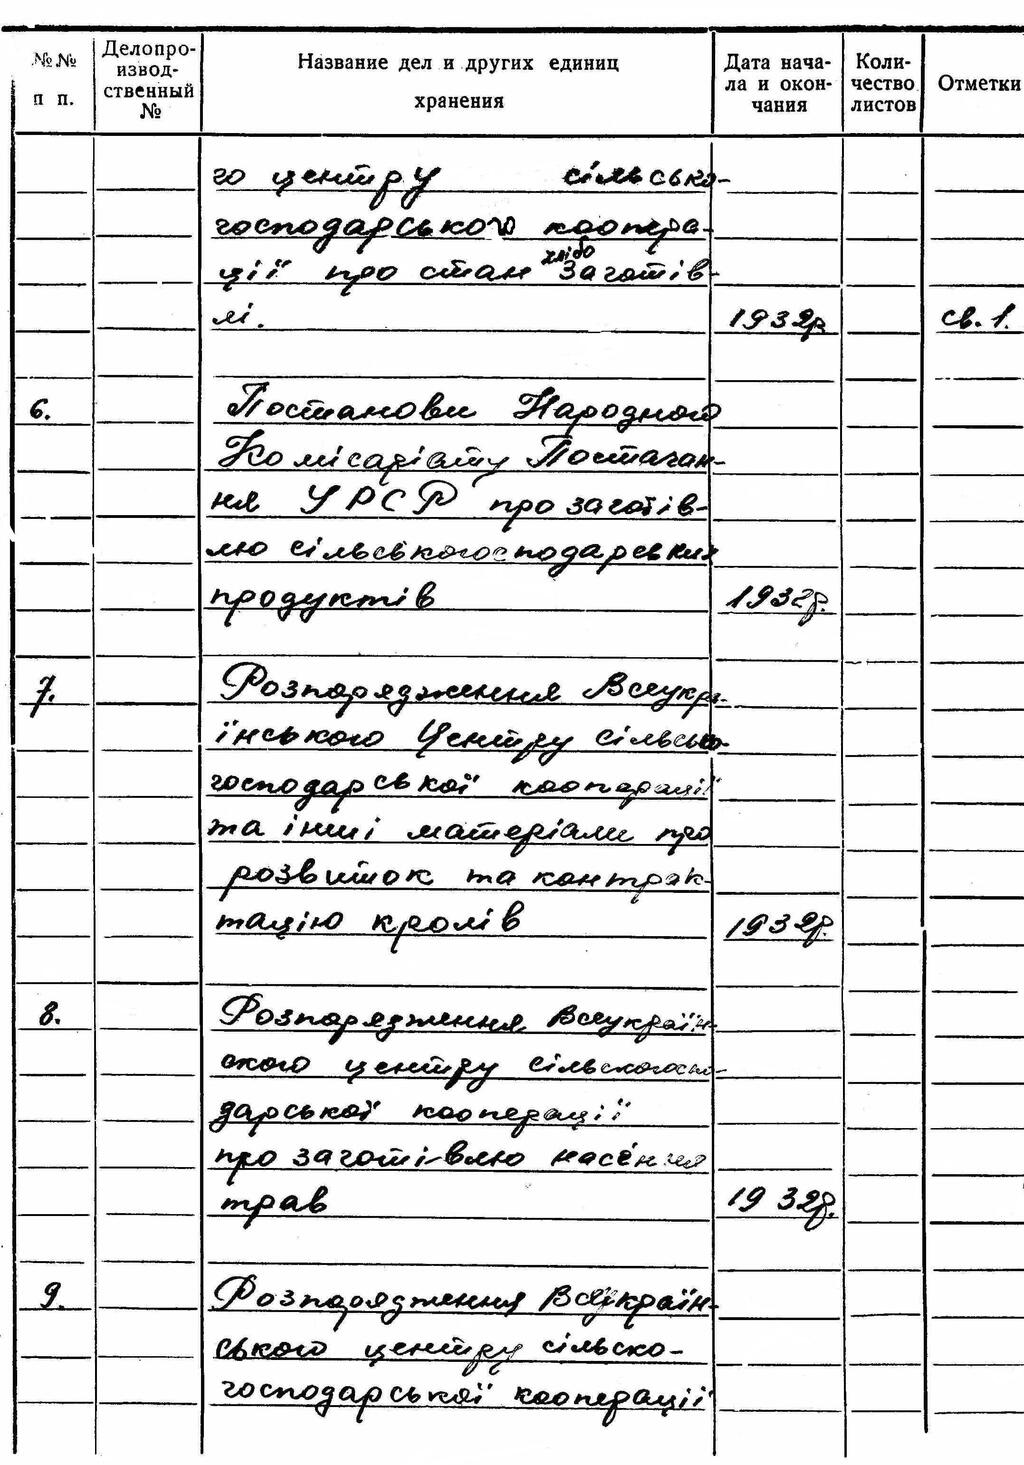 №№ п п.
Делопроизвод-ственный №
Название дел и других единиц хранения
Дата нача-ла и окон-чания
Коли-чество листов
Отметки
го центру сільсько-
господарського коопера-
ції про стан хлібо заготів-
лі. 1932р св. 1.
6. Постанови Народного
Комісаріату Постачан-
ня УРСР про заготів-
лю сільськогосподарських
продуктів 1932р.
7. Розпорядження Всеукра-
їнського Центру сільсько-
господарської кооперації
та інші матеріали про
розвиток та контрак-
тацію кролів 1932р.
8. Розпорядження Всеукраїн-
ского центру сільскогоспо-
дарської кооперації
про заготівлю насення
трав 1932р.
9. Розпорядження Всеукраїн-
ського центру сільско-
господарської кооперації